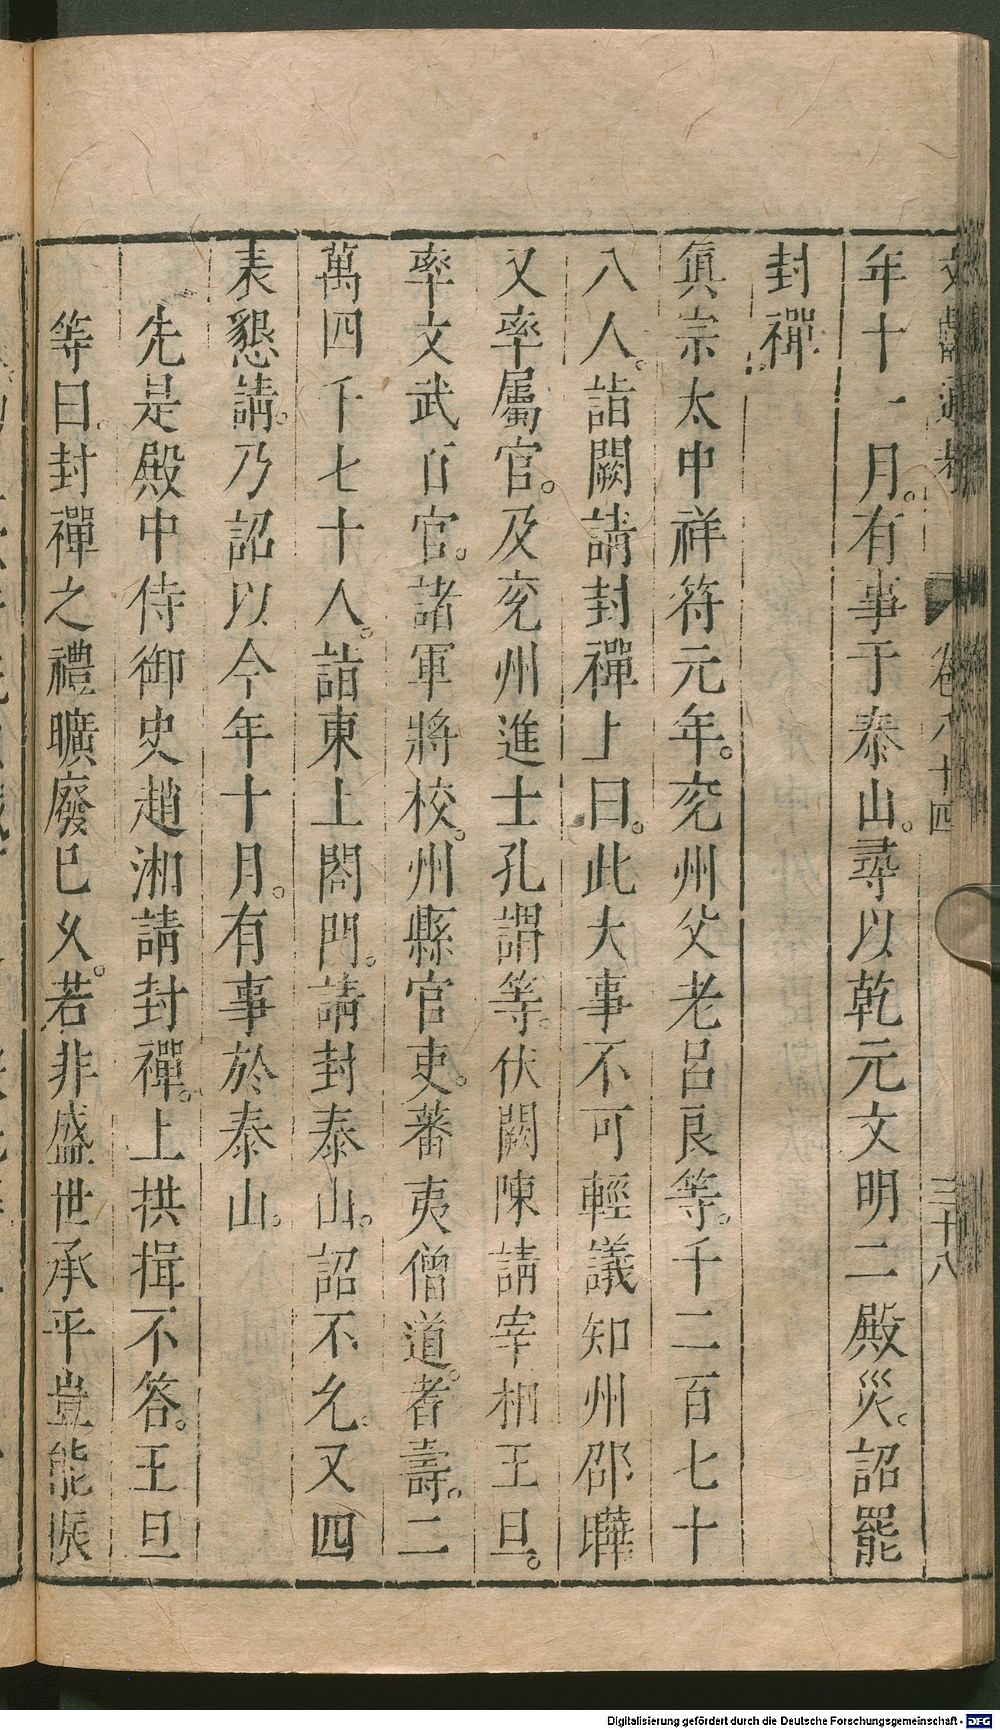 文獻通考 卷八十四 三十八
年十一月。有事于泰山。尋以乾元文明二殿災。詔罷
封禪
眞宗太中祥符元年。兖州父老呂良等。千二百七十
八人。詣闕請封禪上曰。此大事不可輕議知州邵曄
又率屬官。及兖州進士孔謂等。伏闕陳請宰相王旦。
率文武百官。諸軍將校。州縣官吏。蕃夷僧道。耆壽。二
萬四千七十人。詣東上閤門。請封泰山。詔不允。又四
表懇請。乃詔以今年十月。有事於泰山。
先是殿中侍御史趙湘請封禪。上拱揖不答。王旦
等曰。封禪之禮曠廢已久。若非盛世承平豈能振
Digitalisierung gefördert durch die Deutsche Forschungsgemeinschaft - DFG